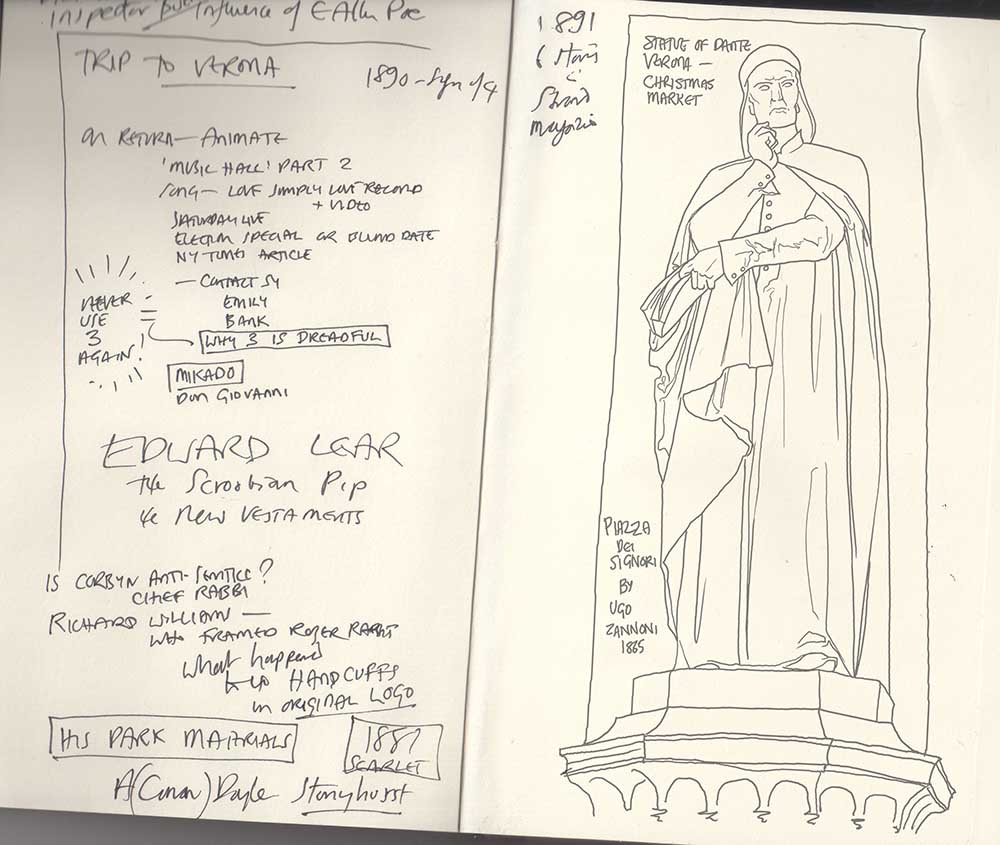 Inspector Influence of E Allen Poe
TRIP TO VERONA
1890 - Sign of 4
ON RETURN - ANIMATE
'MUSIC HALL' PART 2
SONG - LOVE SIMPLY LOVE RECORD
+ VIDEO
SATURDAY LIVE
ELECTION SPECIAL OR BLIND DATE
NY TIMES ARTICLE
- CONTACT SY
EMILY
BANK
NEVER
USE
3
AGAIN!
WHY 3 IS DREADFUL
MIKADO
DON GIOVANNI
EDWARD LEAR
THE Scroobian Pip
THE NEW VESTAMENTS
IS CORBYN ANTI-SEMITIC?
CHIEF RABBI
RICHARD WILLIAMS -
WHO FRAMED ROGER RABBIT
What happened
to HANDCUFFS
in ORIGINAL LOGO
HIS DARK MATERIALS
1887
SCARLET
A(Conan)Doyle Stonyhurst
1891
6 Stories
in
Strand
Magazine
STATUE OF DANTE
VERONA -
CHRISTMAS
MARKET
PIAZZA
DEI
SIGNORI
BY
UGO
ZANNONI
1865